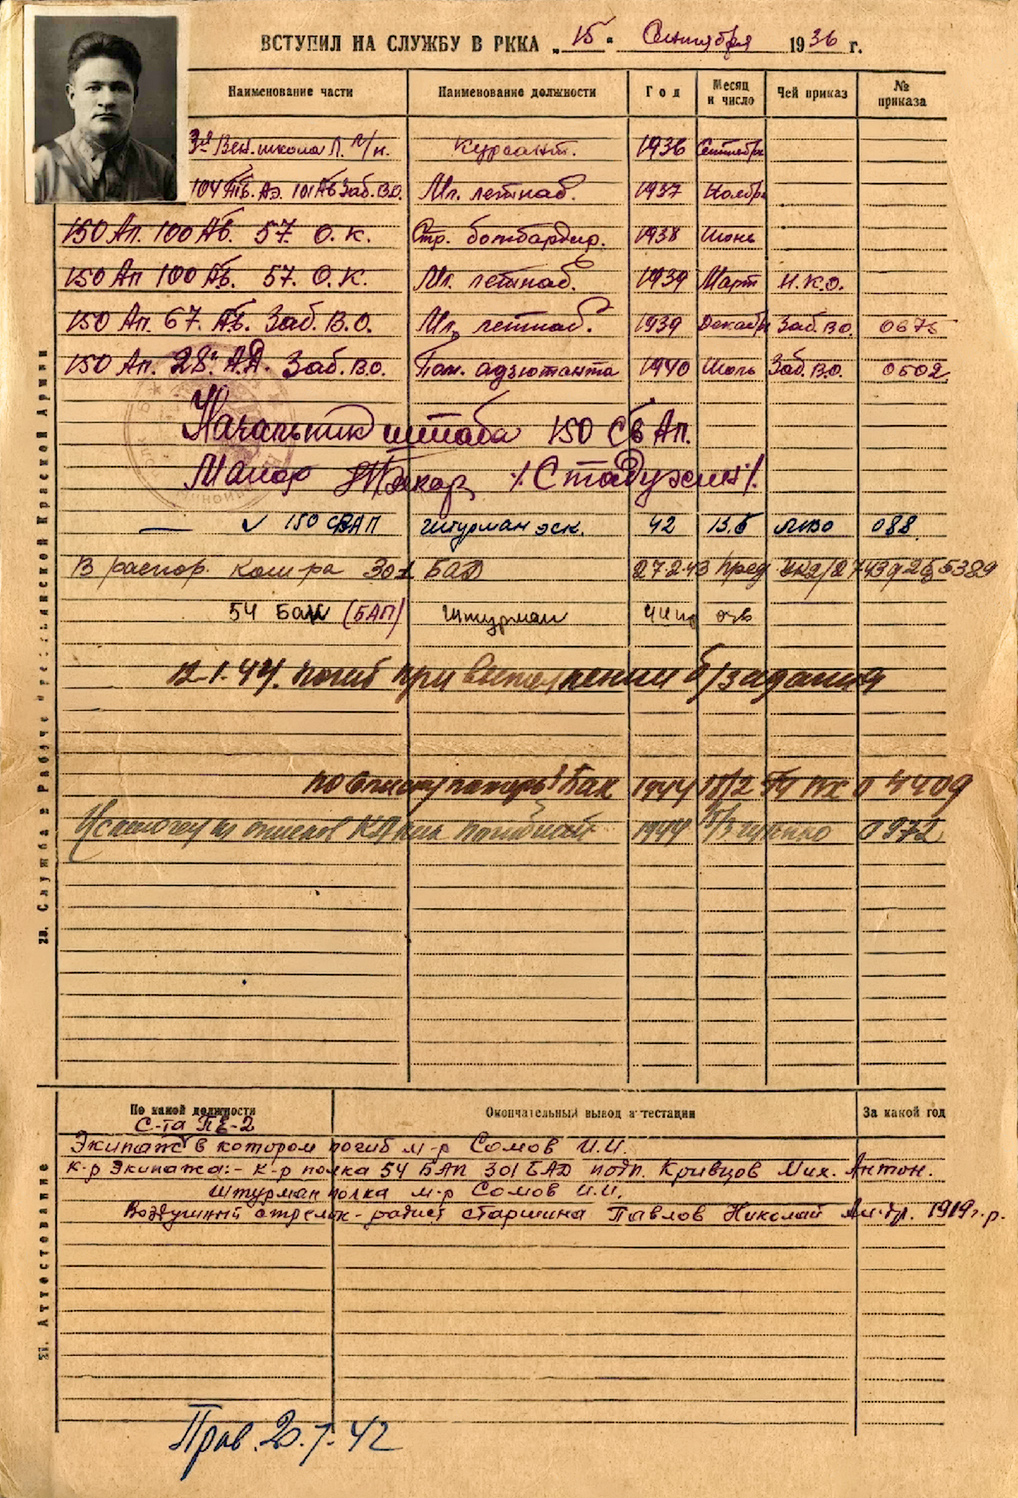 ВСТУПИЛ НА СЛУЖБУ В РККА „15" Сентября 1936 г.
Наименование части Наименование должности Год Месяц и число Чей приказ № приказа
3я Воен. школа Л. Курсант. 1936 Сентябрь
104 Тб. Аэ. 101 Аб Заб. В.О. Мл. летнаб. 1937 Ноябрь
150 Ап. 100 Аб. 57. О.К. Стр. бомбардир. 1938 Июнь
150 Ап 100 Аб. 57. О.К. Мл. летнаб. 1939 Март Н.К.О.
150 Ап. 67. Аб. Заб. В.О. Мл. летнаб. 1939 Декабрь Заб. ВО. 0675
150 Ап. 28й А.Д. Заб. В.О. Пом. адъютанта 1940 Июль Заб. В.О. 0502
Начальник штаба 150 Сб Ап.
Майор
— ✓ 150 СБАП Штурман эск. 42 13.5 088
В распор. ком-ра 301 БАД 27243 5389
54 Бак (БАП) Штурман
12.1.44. погиб при выполнении б/задания
по списку потерь 1944 04409
1944 0972
22. Служба в Рабоче-Крестьянской Красной Армии
По какой должности Окончательный вывод аттестации За какой год
С-та ПЕ-2
Экипаж в котором погиб м-р Сомов И.И.
К-р Экипажа:- к-р полка 54 БАП 301 БАД подп. Кривцов Мих. Антон.
Штурман полка м-р Сомов И.И.
Воздушный стрелок-радист старшина Павлов Николай 1919 г.р.
Аттестование